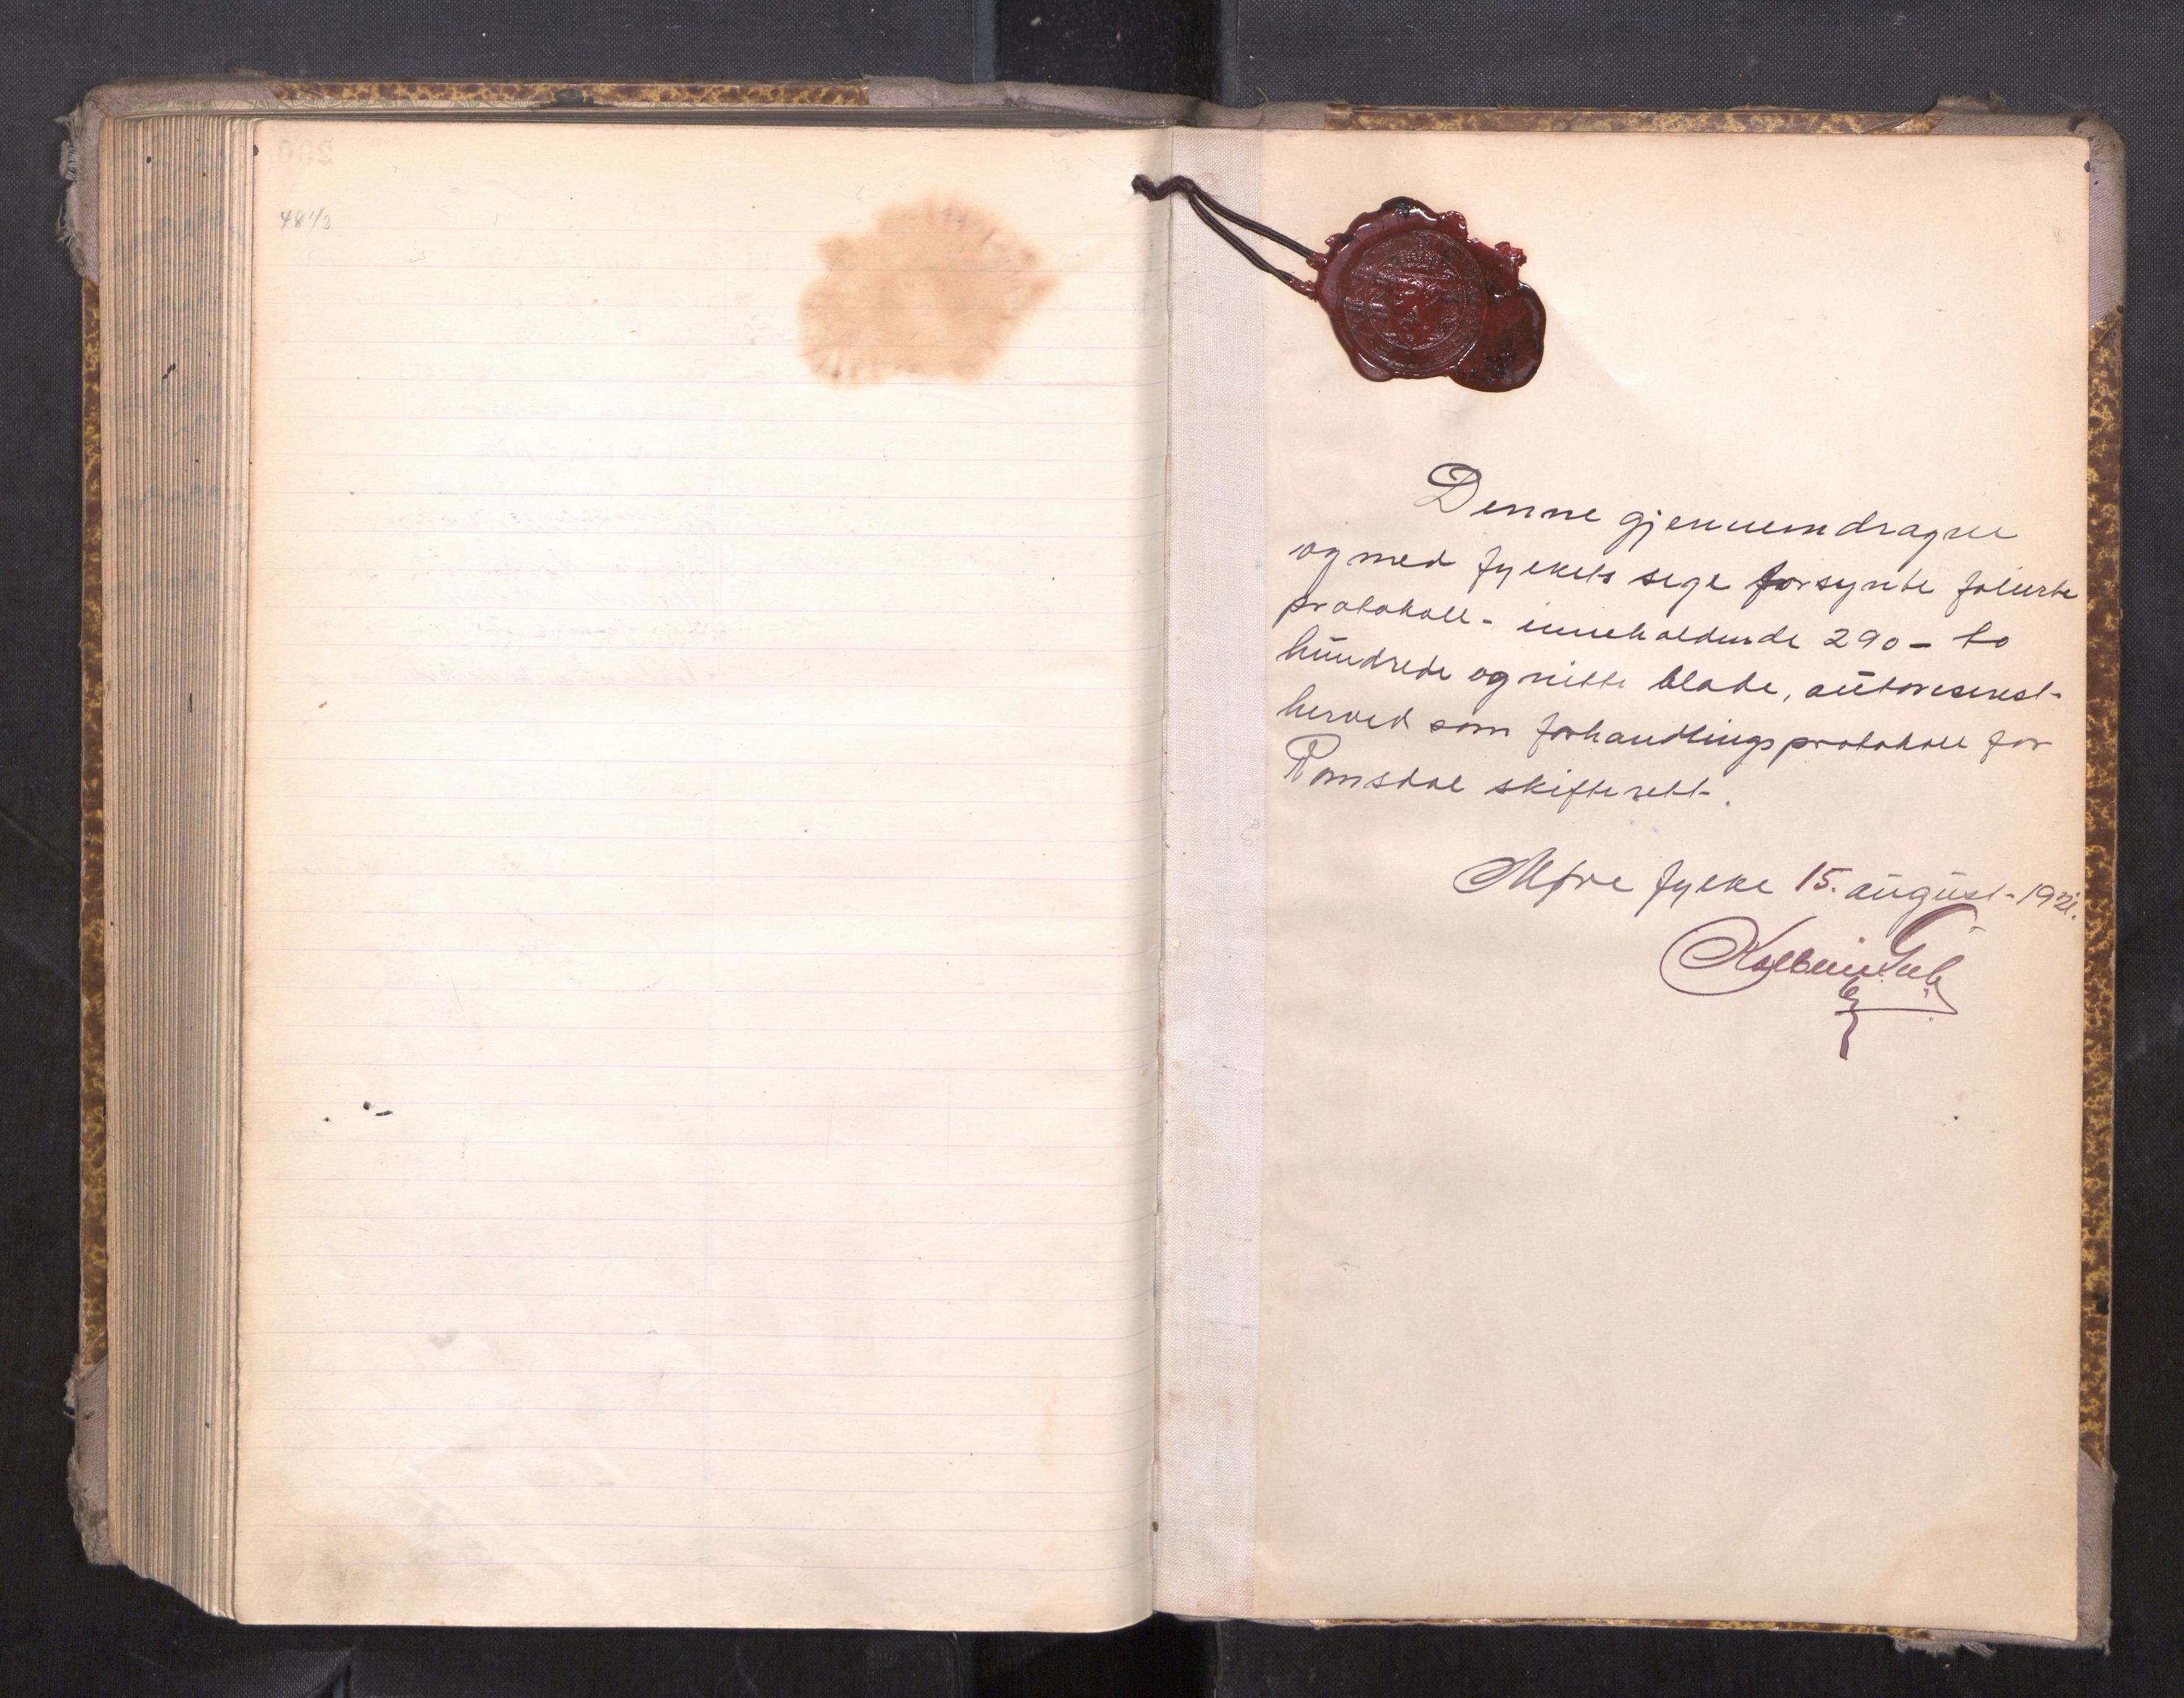 48 1/2
Denne gjennemdragne
og med fylkets segl forsynte folierte
protokoll - inneholdende 290 - to
hundrede og nitti blade, autoriserest
herved som forhandlingsprotokoll for
Romsdal skifterett.
Møre fylke 15. august 1921.